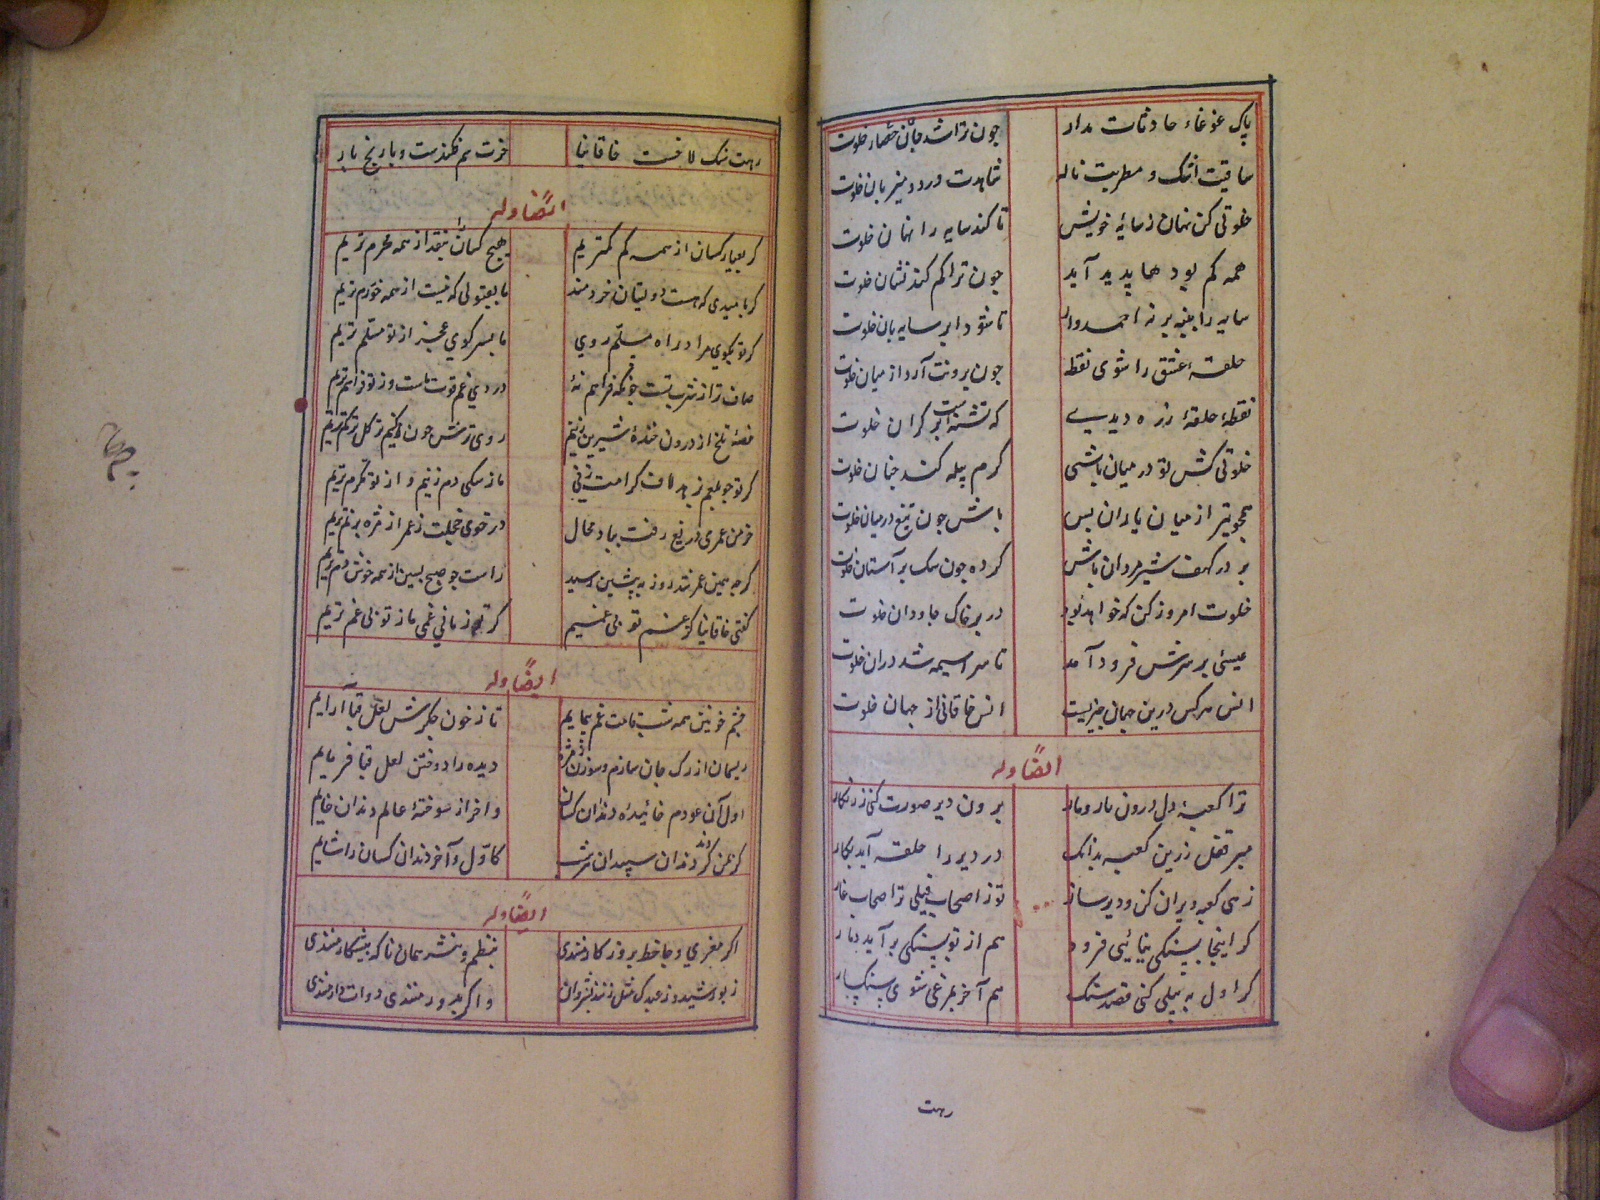 پاک غوغاء حادثات مدار چون ترا شد جان حصار خلوت
ساقیت اشک و مطربت ناله شاهدت درد و میزبان خلوت
خلوتی کن نهان ز سایهٔ خویش تا کند سایه را نهان خلوت
همه کم بود ها پدید آید چون ترا کم کند نشان خلوت
سایه را پنبه بر نه احمدوار تا شود ابر سایه بان خلوت
حلقهٔ عشق را شوی نقطه چون برونت آرد از میان خلوت
نقطهٔ حلقهٔ زره دیدی که نشسته است بر کران خلوت
خلوتی کش تو در میان باشی کرم پیله کند چنان خلوت
همچو تیر از میان یاران بس باش چون تیغ در میان خلوت
بر در کهف شیرمردان باش کرده چون سک بر آستان خلوت
خلوت امروز کن که خواهد بود در بر خاک جاودان خلوت
عیسی بر سرش فرود آمد تا سراسیمه شد دران خلوت
انس هر کس درین جهان چیزیست انس خاقانی از جهان خلوت
ایضًا وله
ترا کعبهٔ دل درون مار و مار برون دیر صورت کنی زرنکار
مبر قفل زرین کعبه بدانک در دیر را حلقه آید بکار
زهی کعبه ویران کن و دیر ساز تو ز اصحاب فیلی نه اصحاب غار
کر اینجا بسنکی نیائی فرود هم از تو بسنکی برآید دمار
کر اول به پیلی کنی قصد سنک هم آخر بمرغی شوی سنکسار
رهت
رهت سنک لاخست خاقانیا خرت سم فکندست و بارنج بار
ایضًا وله
کر بعیار کسان از همه کم کمتریم هیچ کسان را بنقد از همه محرم تریم
کر بامیدی که هست دولتیان خرد مند ما بقبولی که نیست از همه خورم تریم
کر تو بکوی مراد راه مسلّم روی ما بسر کوی عجز از تو مسلّم تریم
صاف تو از شربتست جو که فراهم نهٔ دردی غم قوت ماست وز تو فراهم تریم
غصهٔ تلخ از درون خندهٔ شیرین زنیم روی ترش چون کنیم نز کل تر کم تریم
کر تو جو بلعم بزهد لاف کرامت زنی ما ز سکی دم زنیم و از تو مکرم تریم
خرمن عمری دریغ رفت بباد محال در خوی خجلت ز عمر از مژه پر نم تریم
کرچه همین عمر تند روز به پیشین رسید راست چو صبح پسین از همه خوش دم تریم
کفتی خاقانیا کز غم تو بی غمیم کر تو ز مانی غمی ما ز تو بی غم تریم
ایضًا وله
چشم خونین همه شب قامت غم پیمایم تا ز خون جکرش لعل قبا آرایم
ریسمان از رک جان سازم و سوزن مژه دیده را دوختن لعل قبا فرمایم
اول آن عودم خائیدهٔ دندان کسان و آخر از سوختهٔ عالم دندان خایم
کز من کرد دندان سپیدان سرشت کاول و آخر دندان کسان را شایم
ایضًا وله
اکر معزی و جاحظ بروزکار منندی بنظم و نثر همانا که پیشکار منندی
ز بو رشید و ز عبدک مثل زنند بشروان و اکر بدور منندی دوات دار منندی